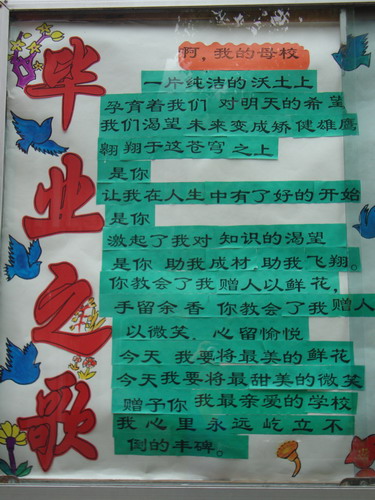 毕业之歌
啊，我的母校
一片纯洁的沃土上
孕育着我们 对明天的希望
我们渴望未来变成矫健雄鹰
翱翔于这苍穹之上
是你
让我在人生中有了好的开始
是你
激起了我对知识的渴望
是你 助我成材，助我飞翔。
你教会了我赠人以鲜花，
手留余香 你教会了我赠人
以微笑．心留愉悦
今天 我要将最美的鲜花
今天我要将最甜美的微笑
赠予你我最亲爱的学校
我心里永远屹立不
倒的丰碑。